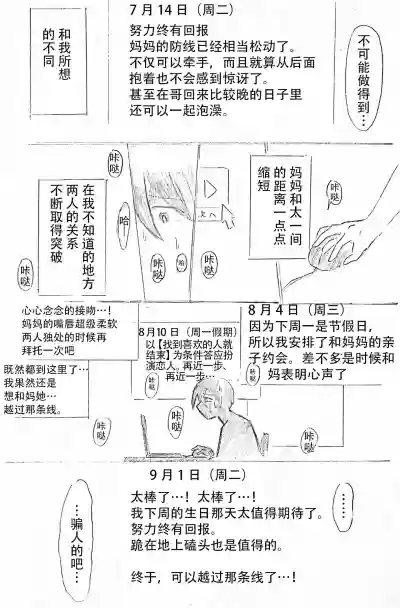 7月14日（周二）
努力终有回报
妈妈的防线已经相当松动了。
不仅可以牵手，而且就算从后面
抱着也不会感到惊讶了。
甚至在哥回来比较晚的日子里
还可以一起泡澡。
不可能做得到…
和我所想
的不同
妈妈和太一间
的距离一点点
缩短
咔哒
哈
咔哒
哈
咔哒
咔哒
次へ
在我不知道的地方
两人的关系
不断取得突破
咔哒
8月4日（周三）
因为下周一是节假日，
所以我安排了和妈妈的亲
子约会。差不多是时候和
妈表明心声了
8月10日（周一假期）
以【找到喜欢的人就
结束】为条件答应扮
演恋人。再近一步、
再近一步…
心心念念的接吻…！
妈妈的嘴唇超级柔软
两人独处的时候再
拜托一次吧
既然都到这里了…
我果然还是
想和妈她…
越过那条线。
咔哒
咔哒
咔哒
咔哒
咔哒
9月1日（周二）
太棒了…！太棒了…！
我下周的生日那天太值得期待了。
努力终有回报。
跪在地上磕头也是值得的。
终于，可以越过那条线了…！
……
…骗人的吧…